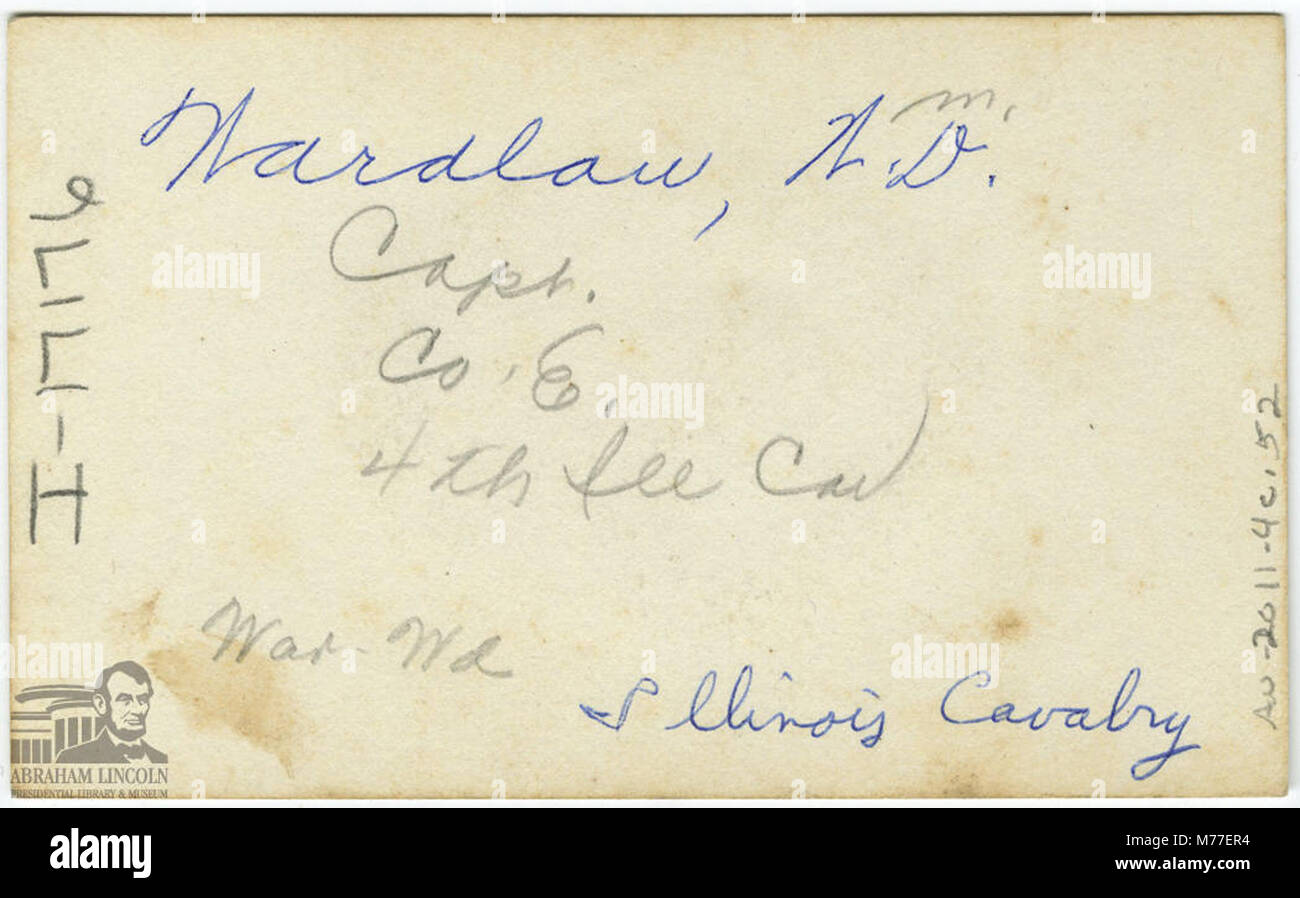 Wardlaw, W.D.
m.
Capt.
Co. E.
4th Ill Cav
War - Wd
Illinois Cavalry
Av-2011-4c.52
ABRAHAM LINCOLN
PRESIDENTIAL LIBRARY & MUSEUM
alamy
alamy
alamy
alamy
alamy
alamy
alamy
Image ID: M77ER4
www.alamy.com